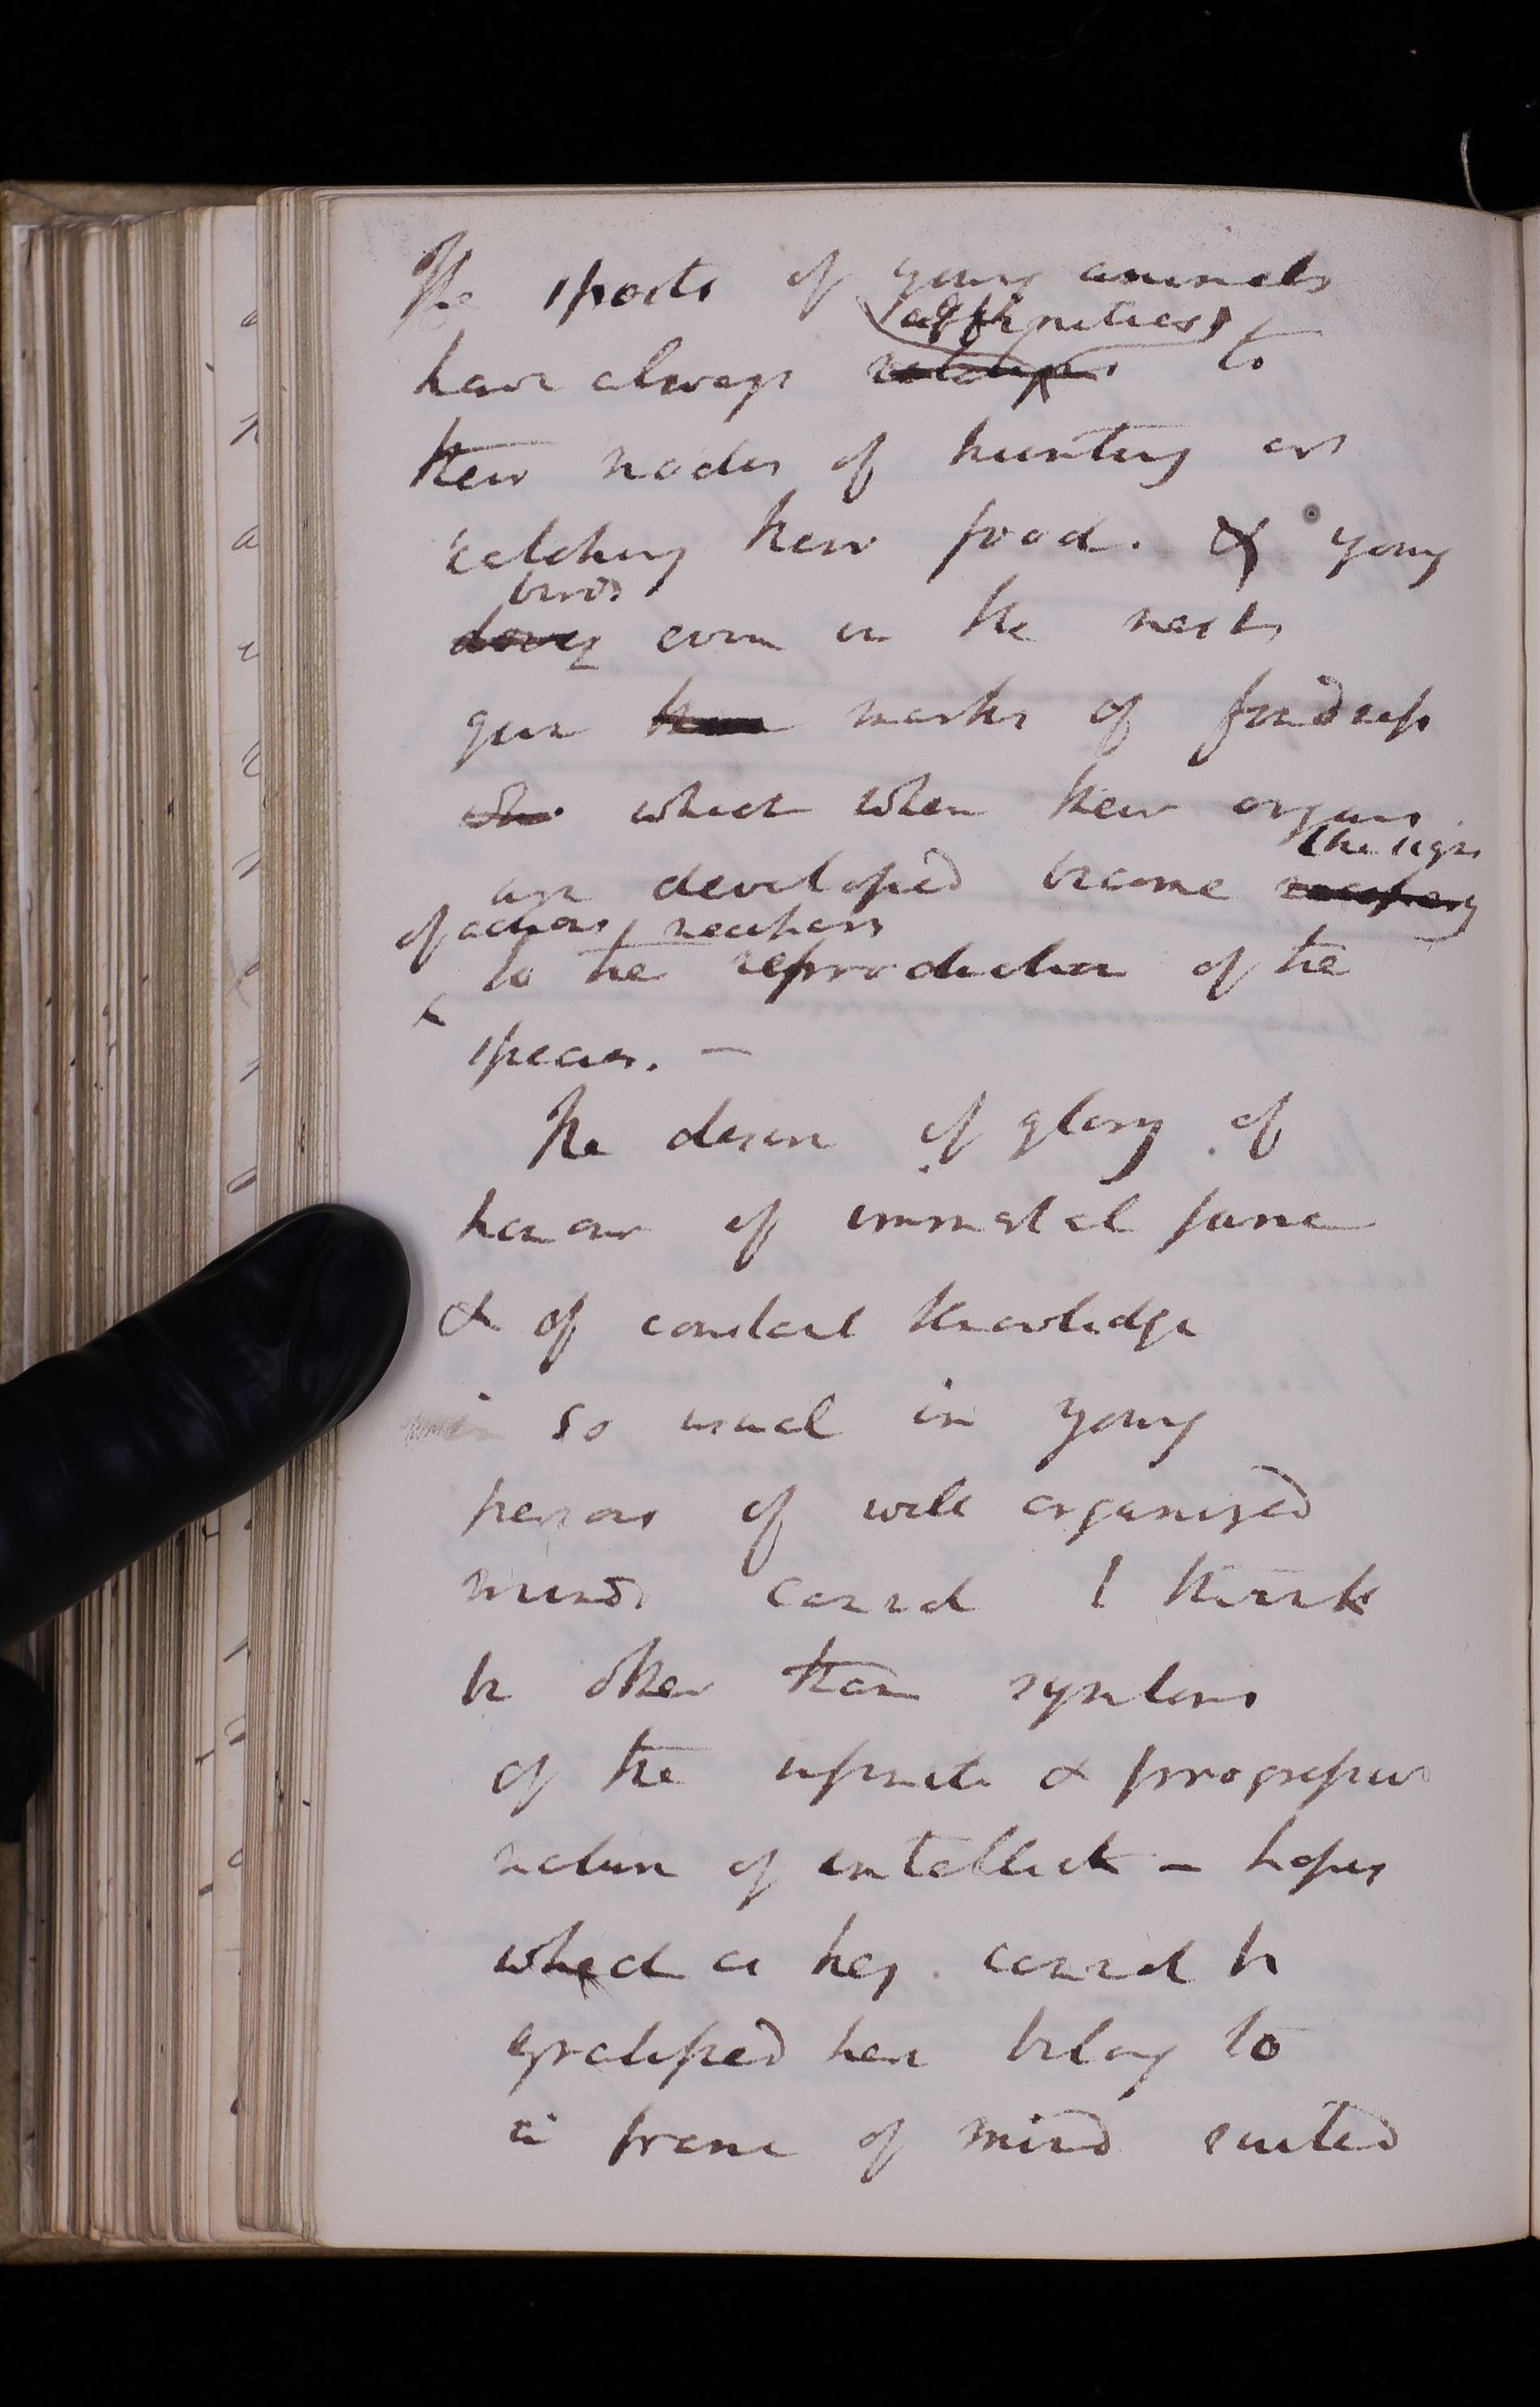 The sports of young animals
affinities
have always relations to
their modes of hunting or
catching their food. & young
birds
doves even in the nests
give marks of fondness
which when their organs
the signs
are developed become necessary
of actions necessary
to the reproduction of the
species. —
The desire of glory of
honour of immortal fame
& of constant knowledge
so usual in young
persons of well organized
minds cannot I think
be other than symptoms
of the infinite & progressive
nature of intellect – hopes
which as they cannot be
gratified here belong to
a frame of mind suited